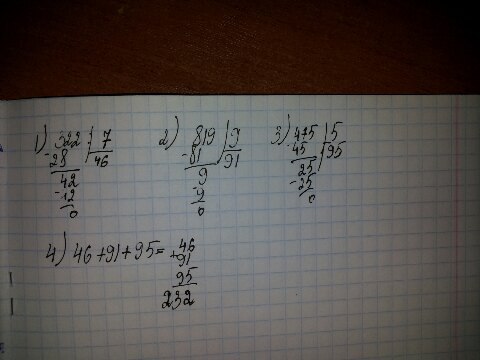 1) 322 | 7
- 28 | 46
42
- 42
0
2) 819 | 9
- 81 | 91
9
- 9
0
3) 475 | 5
- 45 | 95
25
- 25
0
4) 46+91+95= 46
+ 91
95
232